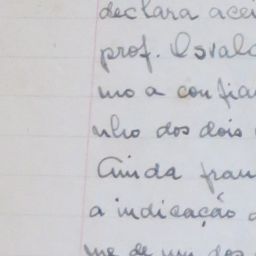 declara acei
prof. Osvald
mo a confian
nho dos dois
Ainda fran
a indicação d
me de um dos